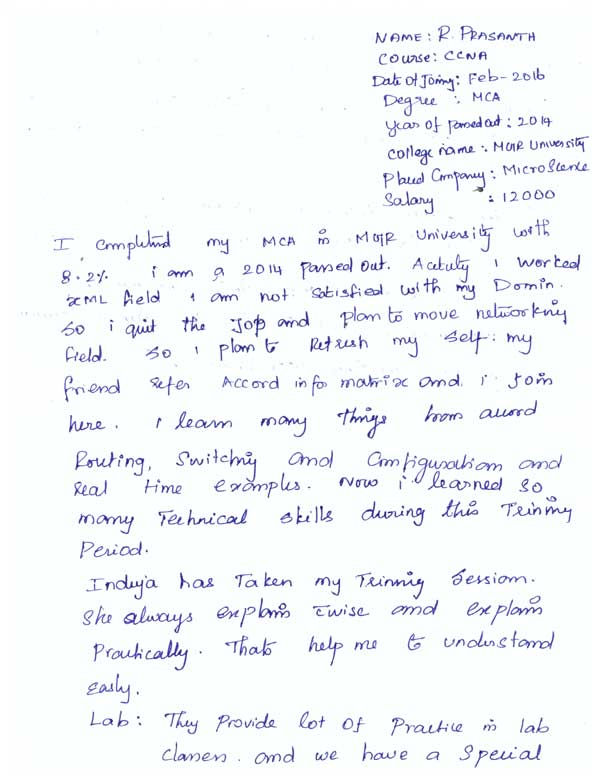 NAME: R. PRASANTH
Course: CCNA
Date of Joinng: Feb-2016
Degree : MCA
Year of passed out: 2014
College name: MGR University
Placed Company: MicroScence
Salary : 12000
I completed my MCA in MGR University with
8.2%. i am a 2014 passed out. Actuly i worked
xML field i am not satisfied with my Domin.
So i quit the Jop and plan to move networking
field. So i plan to Refresh my self. my
friend refer Accord info matrix and i join
here. i learn many things from accord
Routing, Switching and Configuration and
real time examples. Now i learned so
many Technical skills during this Trining
Period.
Induja has Taken my Trining Session.
She always explain twise and explain
Practically. Thats help me to understand
easly.
Lab: They Provide lot of Practice in lab
classes. and we have a special